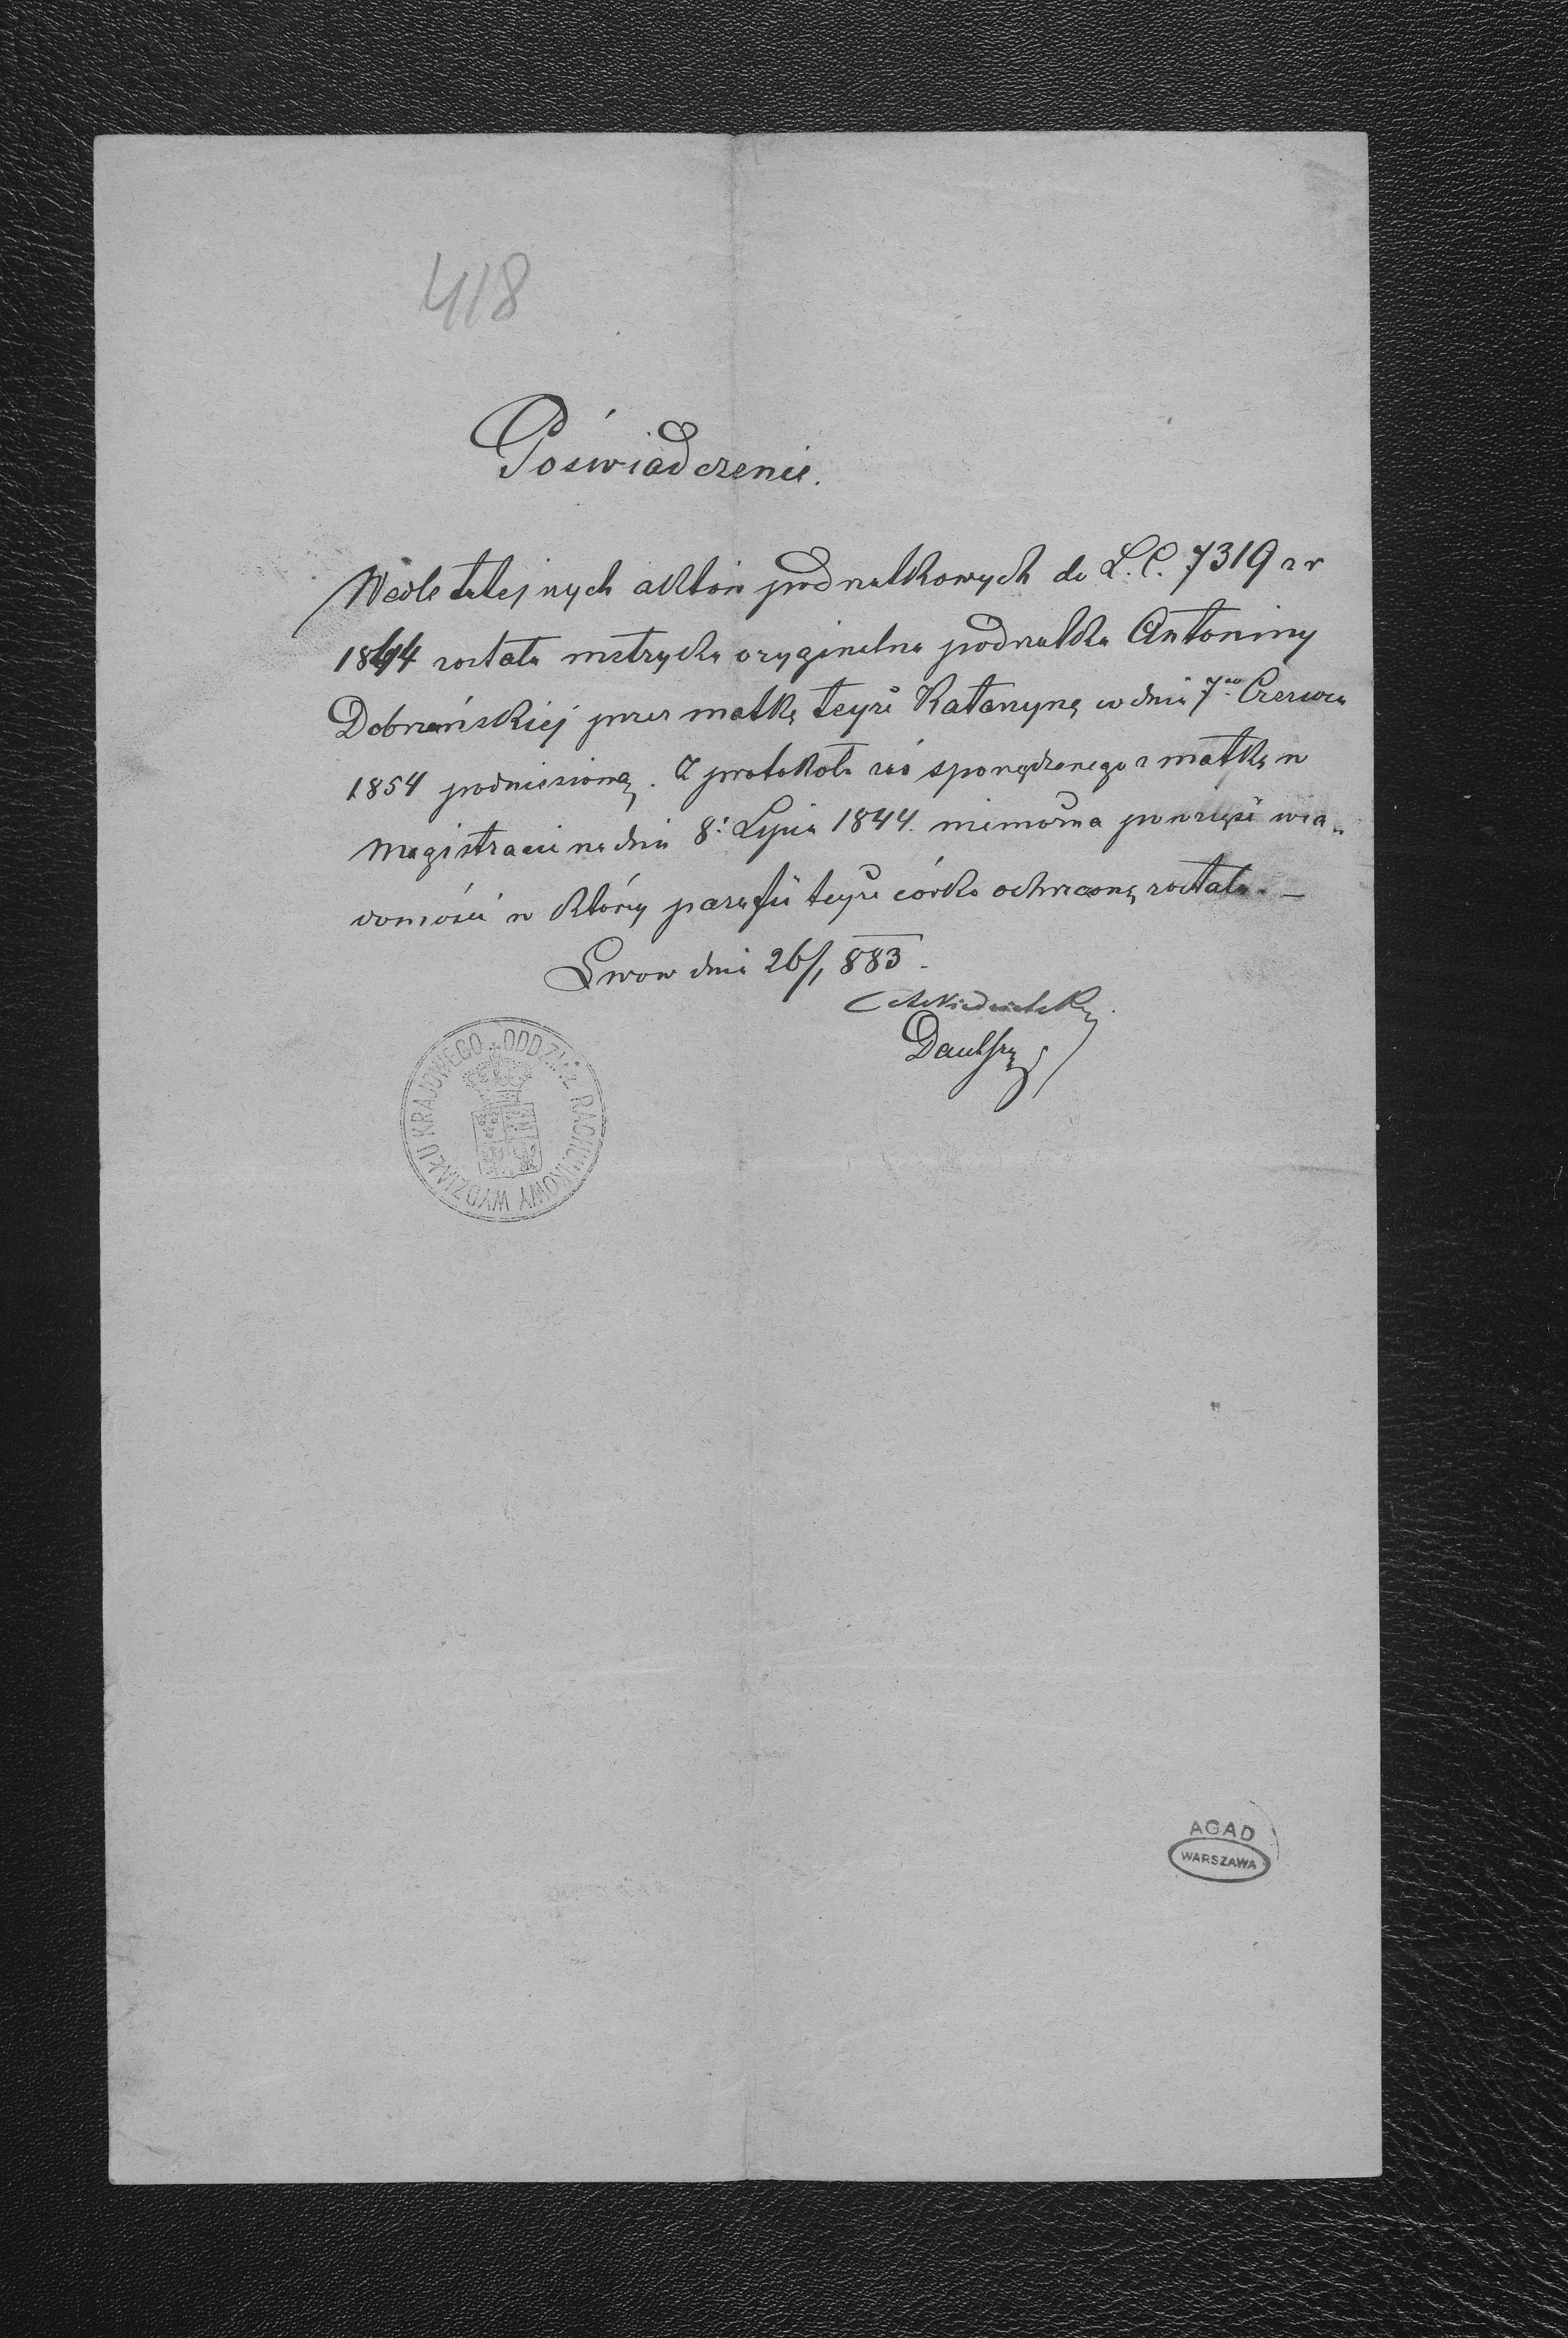 418
Poświadczenie.
Wedle tutejszych aktów podrzutkowych do L. C. 7319 z r
1844 została metryka oryginalna podrzutka Antoniny
Dobrzańskiej przez matkę tejże Katarzynę w dniu 7go Czerwca
1854 podniesioną. Z protokołu zaś sporządzonego z matką w
Magistracie na dniu 8: Lipca 1844. niemożna powziąść wia-
domości w której parafii tejże córka ochrzconą została. —
Lwow dnia 26/1 883.
ODDZIAŁ RACHUNKOWY WYDZIAŁU KRAJOWEGO
AGAD
WARSZAWA